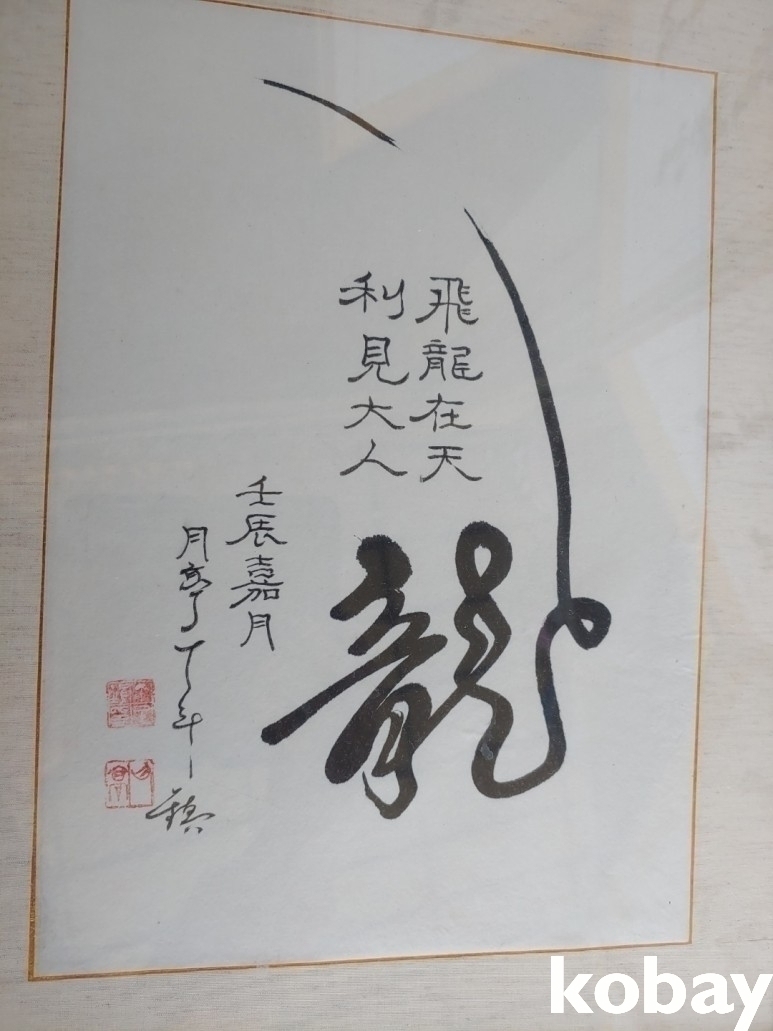 飛龍在天
利見大人
龍
壬辰嘉月
月亭
kobay